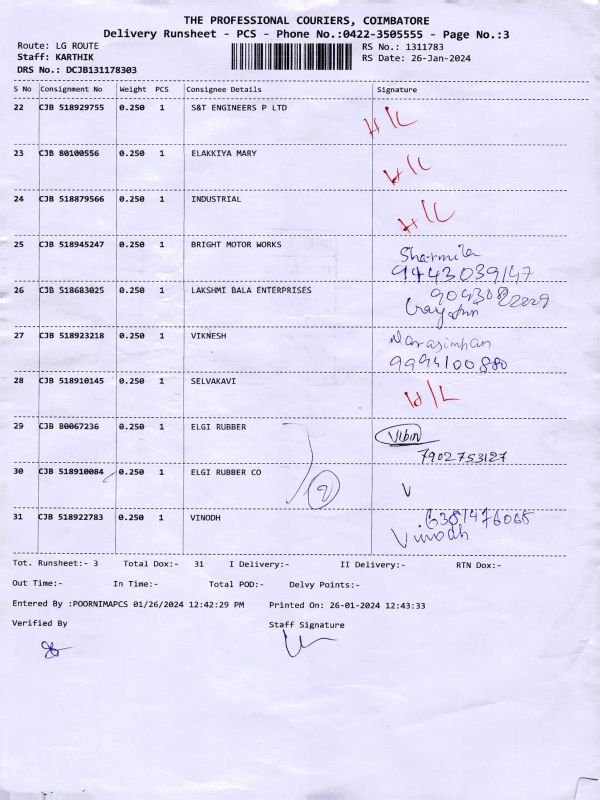 THE PROFESSIONAL COURIERS, COIMBATORE
Delivery Runsheet - PCS - Phone No.:0422-3505555 - Page No.:3
Route: LG ROUTE RS No.: 1311783
Staff: KARTHIK RS Date: 26-Jan-2024
DRS No.: DCJB131178303
S No Consignment No Weight PCS Consignee Details Signature
22 CJB 518929755 0.250 1 S&T ENGINEERS P LTD
23 CJB 80100556 0.250 1 ELAKKIYA MARY
24 CJB 518879566 0.250 1 INDUSTRIAL
25 CJB 518945247 0.250 1 BRIGHT MOTOR WORKS Sharmila
9443039147
26 CJB 518683025 0.250 1 LAKSHMI BALA ENTERPRISES
27 CJB 518923218 0.250 1 VIKNESH Narasimhan
9994100880
28 CJB 518910145 0.250 1 SELVAKAVI
29 CJB 80067236 0.250 1 ELGI RUBBER Vibin
7902753127
30 CJB 518910084 0.250 1 ELGI RUBBER CO
31 CJB 518922783 0.250 1 VINODH 6381476065
Vinodh
Tot. Runsheet:- 3 Total Dox:- 31 I Delivery:- II Delivery:- RTN Dox:-
Out Time:- In Time:- Total POD:- Delvy Points:-
Entered By :POORNIMAPCS 01/26/2024 12:42:29 PM Printed On: 26-01-2024 12:43:33
Verified By Staff Signature